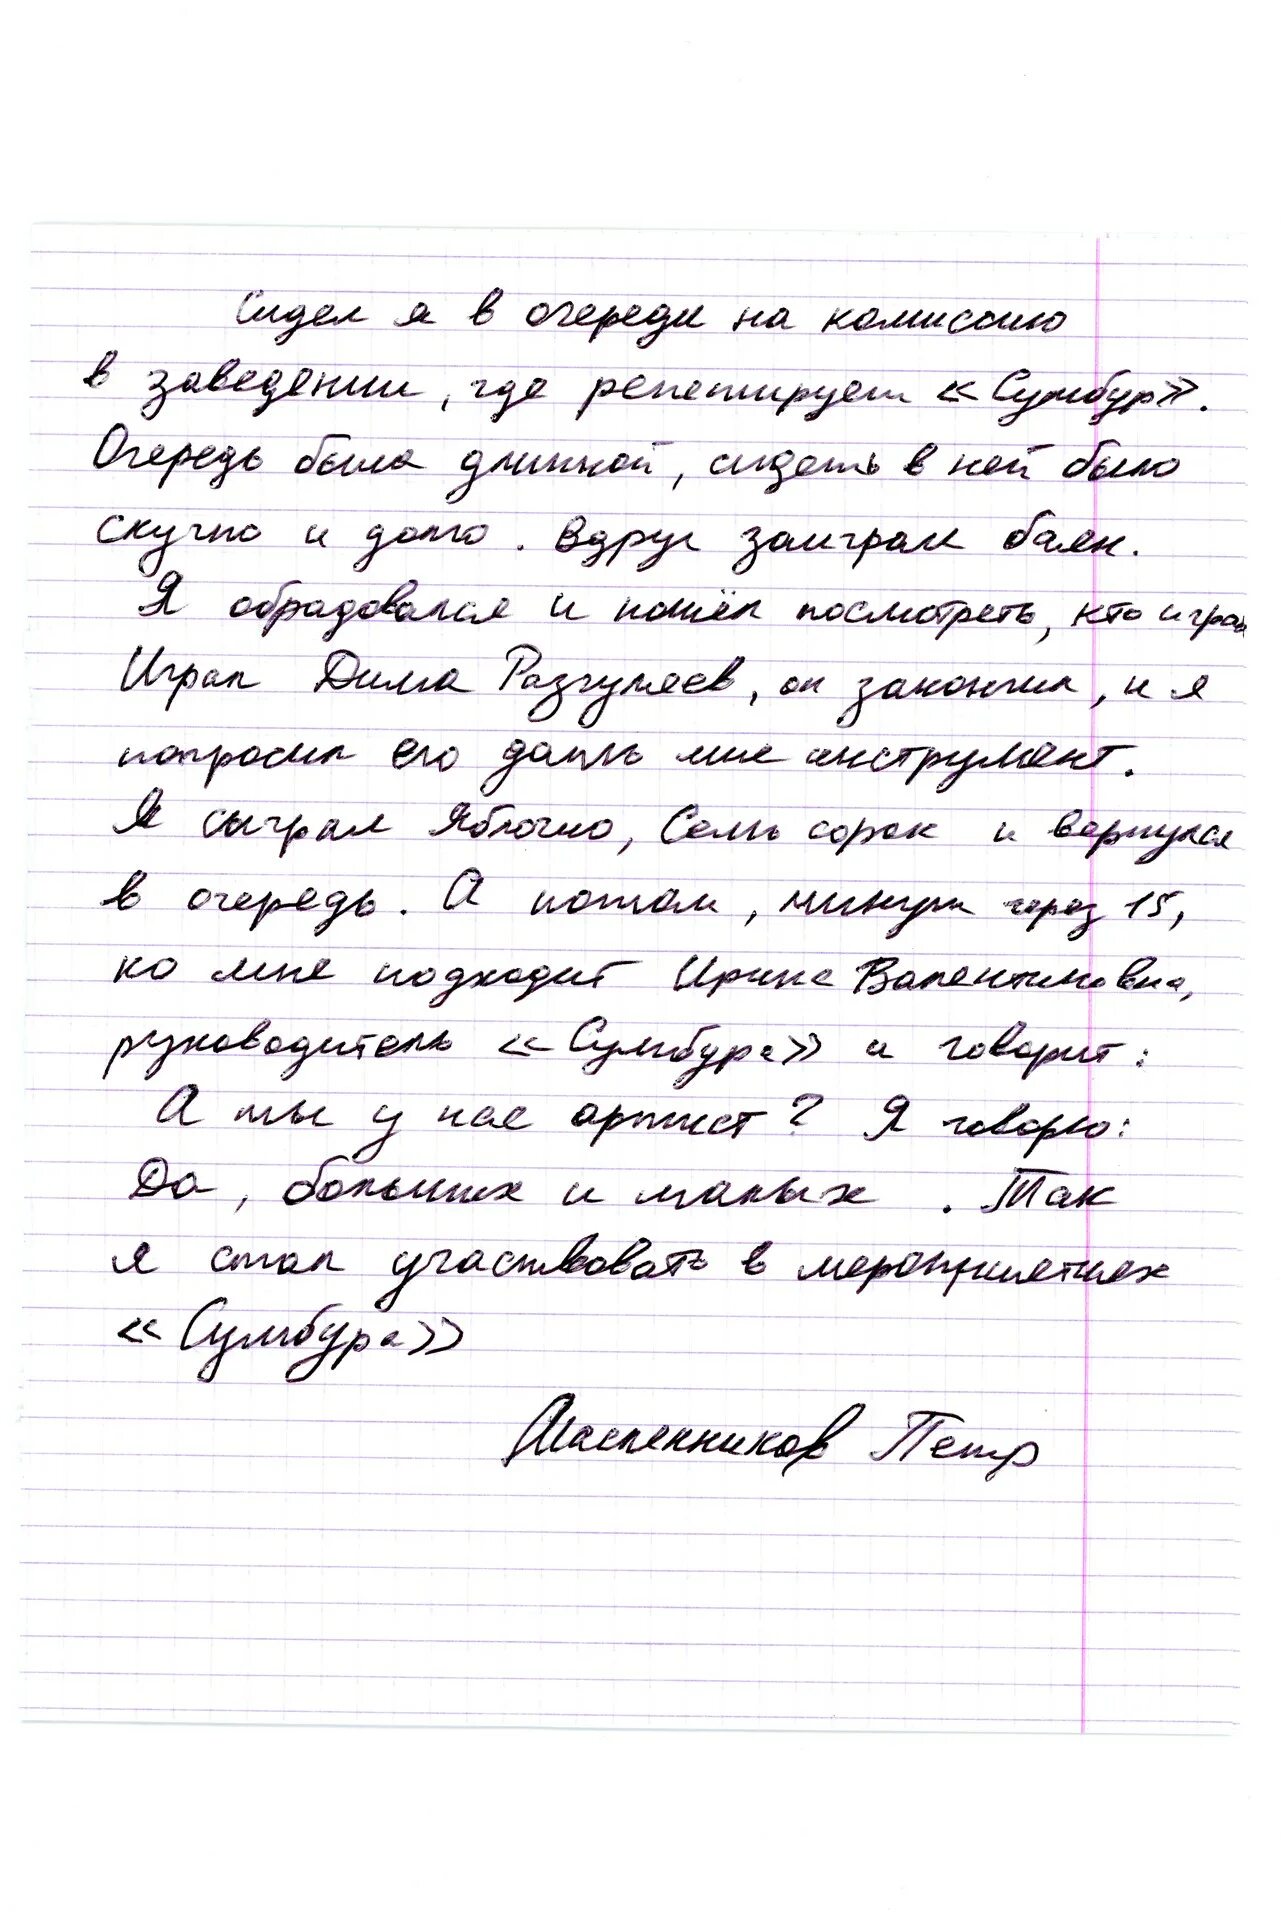 Сидел я в очереди на комиссию
в заведении, где репетирует «Сумбур».
Очередь была длинной, сидеть в ней было
скучно и долго. Вдруг заиграл баян.
Я обрадовался и пошёл посмотреть, кто играл
Играл Дима Разгуляев, он закончил, и я
попросил его дать мне инструмент.
Я сыграл Яблочко, Семь сорок и вернулся
в очередь. А потом, минут через 15,
ко мне подходит Ирина Валентиновна,
руководитель «Сумбура» и говорит:
А ты у нас артист? Я говорю:
Да, больших и малых. Так
я стал участвовать в мероприятиях
«Сумбура»
Масленников Петр